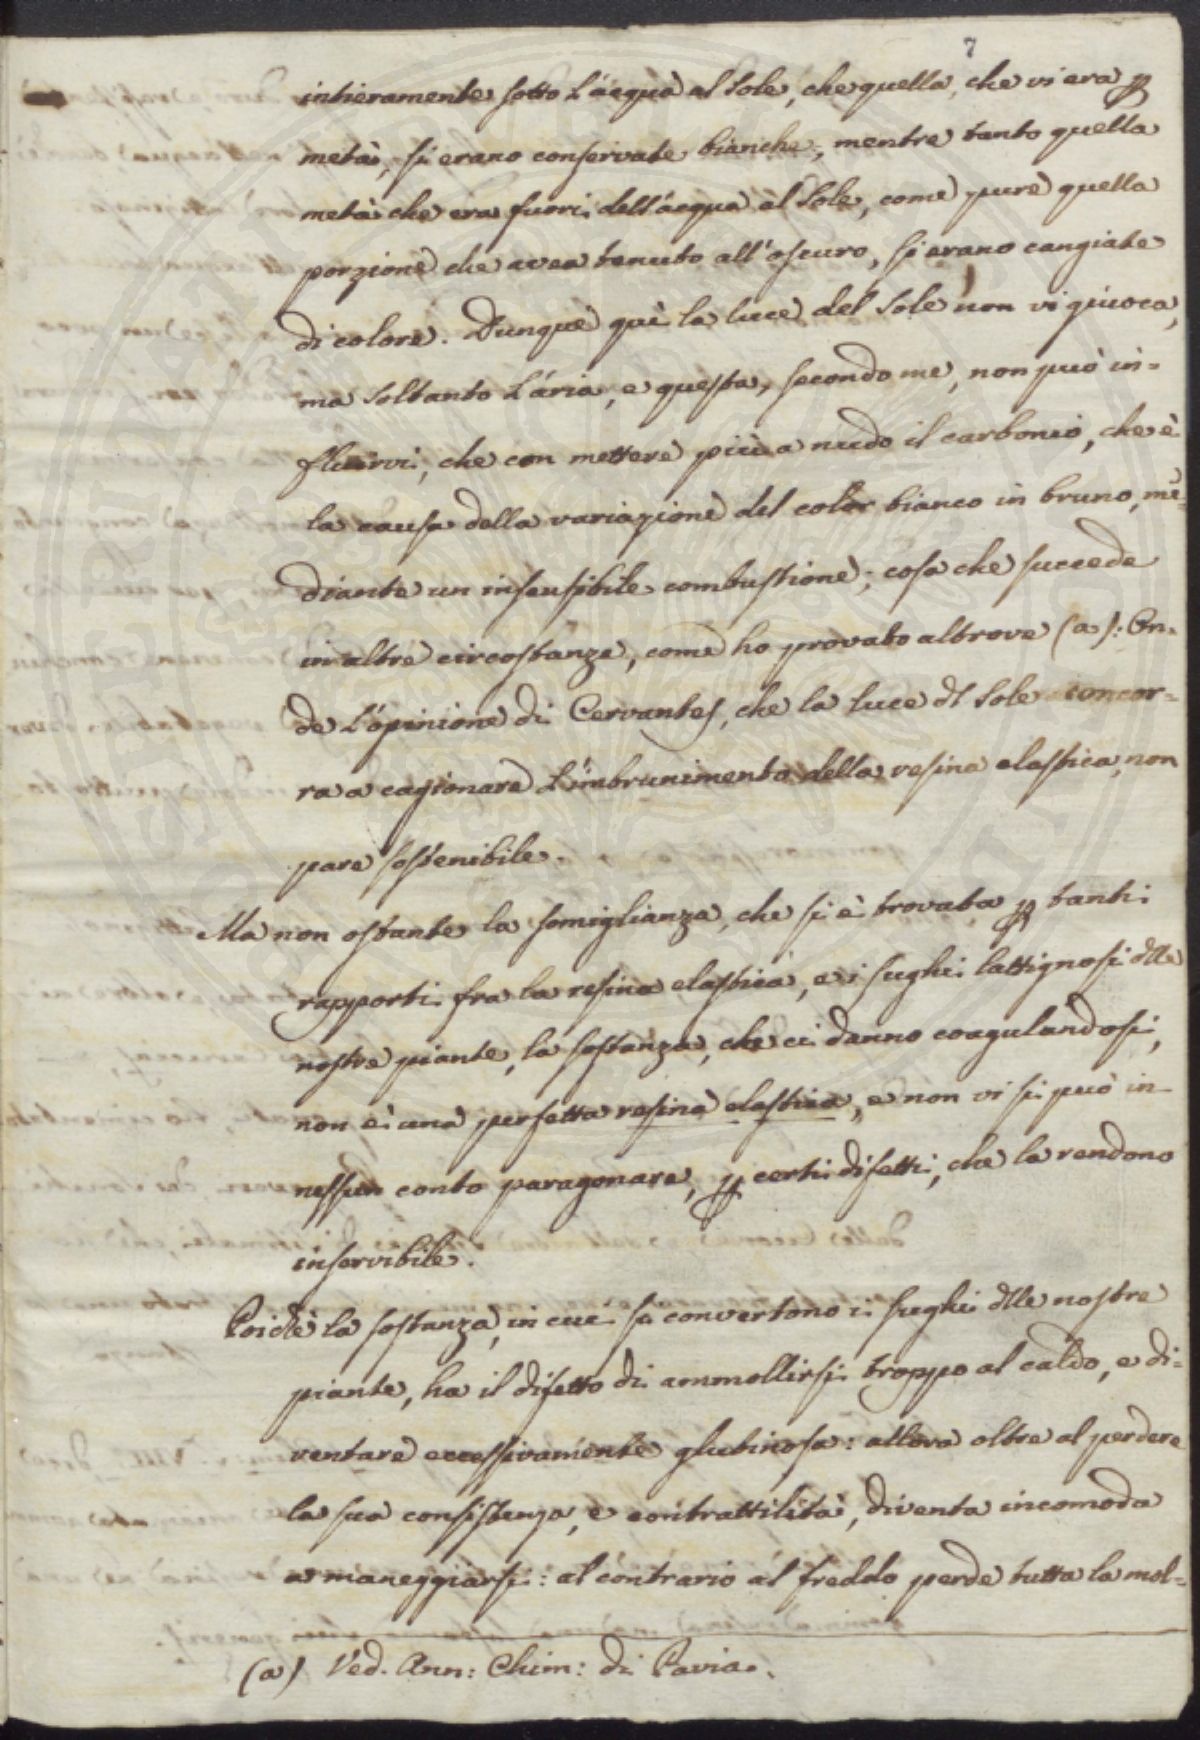 7
intieramente sotto l'acqua al Sole, che quella, che vi era p
metà, si erano conservate bianche, mentre tanto quella
metà che era fuori dell'acqua al Sole, come pure quella
porzione che avea tenuto all'oscuro, si erano cangiate
di colore. Dunque quì la luce del Sole non vi giuoca,
ma soltanto l'aria, e questa, secondo me, non può in=
fluirvi, che con mettere più a nudo il carbonio, che è
la causa della variazione del color bianco in bruno, me=
diante un insensibile combustione; cosa che succede
in altre circostanze, come ho provato altrove (a): On=
de l'opinione di Cervantes, che la luce dl Sole concor=
ra a cagionare l'imbrunimento della resina elastica, non
pare sostenibile.
Ma non ostante la somiglianza, che si è trovata p tanti
rapporti fra la resina elastica, e i sughi lattignosi dlle
nostre piante, la sostanza, che ci danno coagulandosi,
non è una perfetta resina elastica, e non vi si può in
nessun conto paragonare, p certi difetti, che la rendono
inservibile.
Poichè la sostanza, in cui si convertono i sughi dlle nostre
piante, ha il difetto di ammollirsi troppo al caldo, e di=
ventare eccessivamente glutinosa: allora oltre al perdere
la sua consistenza, e contrattilità, diventa incomoda
a maneggiarsi: al contrario al freddo perde tutta la mol=
(a) Ved. Ann: Chim: di Pavia.